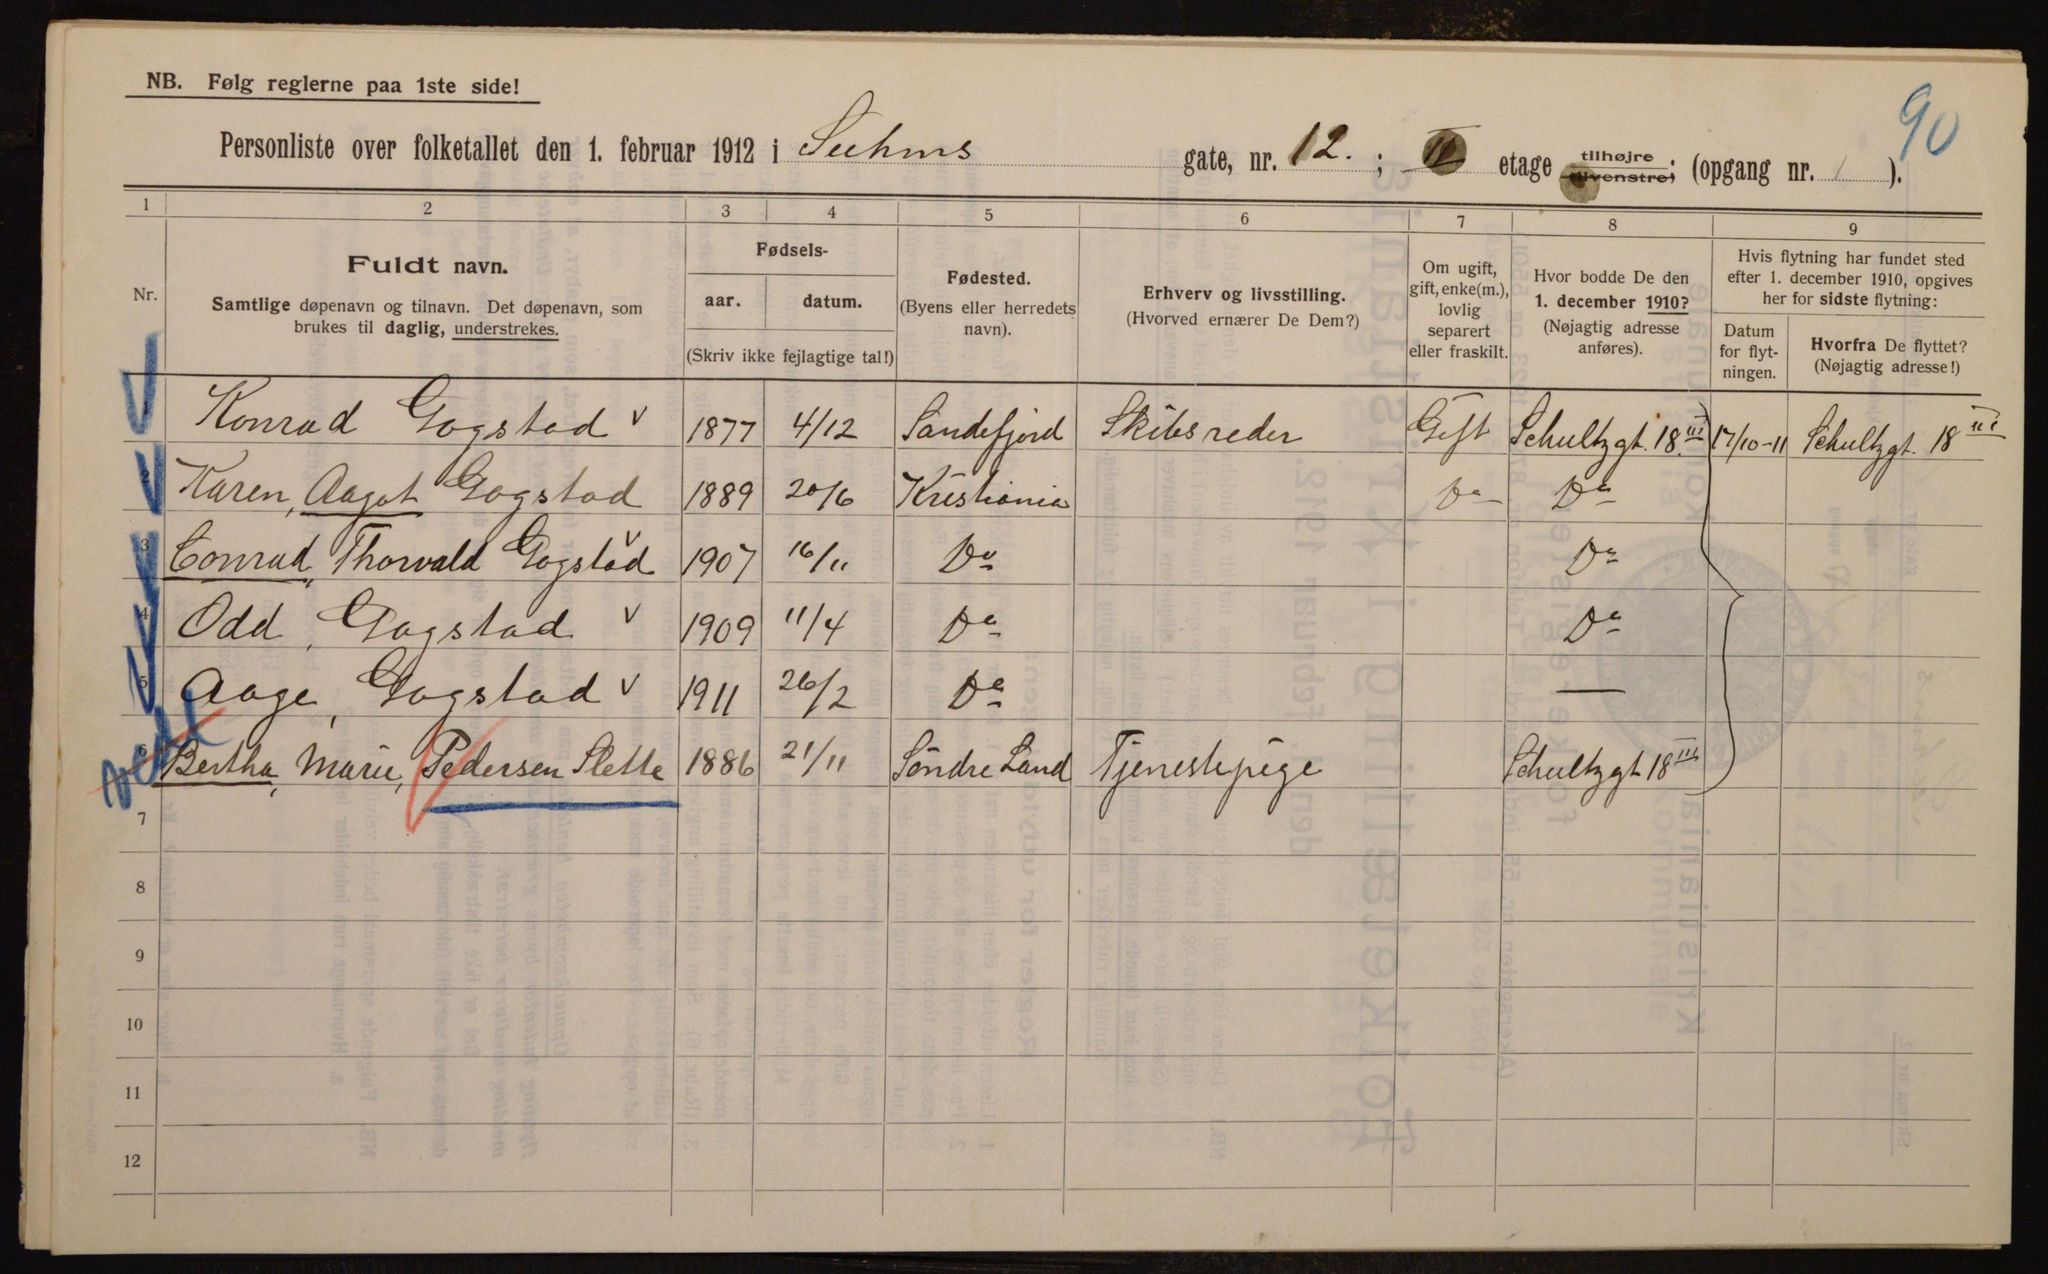 90
NB. Følg reglerne paa 1ste side!
Personliste over folketallet den 1. februar 1912 i Suhms gate, nr. 12. ; II etage tilhøjre tilvenstre; (opgang nr. 1 ).
1 2 3 4 5 6 7 8 9
Nr.
Fuldt navn.
Samtlige døpenavn og tilnavn. Det døpenavn, som
brukes til daglig, understrekes.
Fødsels-
aar. datum.
(Skriv ikke fejlagtige tal!)
Fødested.
(Byens eller herredets
navn).
Erhverv og livsstilling.
(Hvorved ernærer De Dem?)
Om ugift,
gift, enke(m.),
lovlig
separert
eller fraskilt.
Hvor bodde De den
1. december 1910?
(Nøjagtig adresse
anføres).
Hvis flytning har fundet sted
efter 1. december 1910, opgives
her for sidste flytning:
Datum
for flyt-
ningen.
Hvorfra De flyttet?
(Nøjagtig adresse!)
1 Konrad Gogstad v 1877 4/12 Sandefjord Skibsreder Gift Schultzgt. 18 III 17/10-11 Schultzgt. 18 III
2 Karen, Aagot Gogstad 1889 20/6 Kristiania Do Do
3 Conrad, Thorvald Gogstad v 1907 16/11 Do Do
4 Odd, Gogstad v 1909 11/4 Do Do
5 Aage, Gogstad v 1911 26/2 Do —
6 Bertha, Marie, Pedersen Slette 1886 21/11 Søndre Land Tjenestepige Schultzgt 18 III
7
8
9
10
11
12